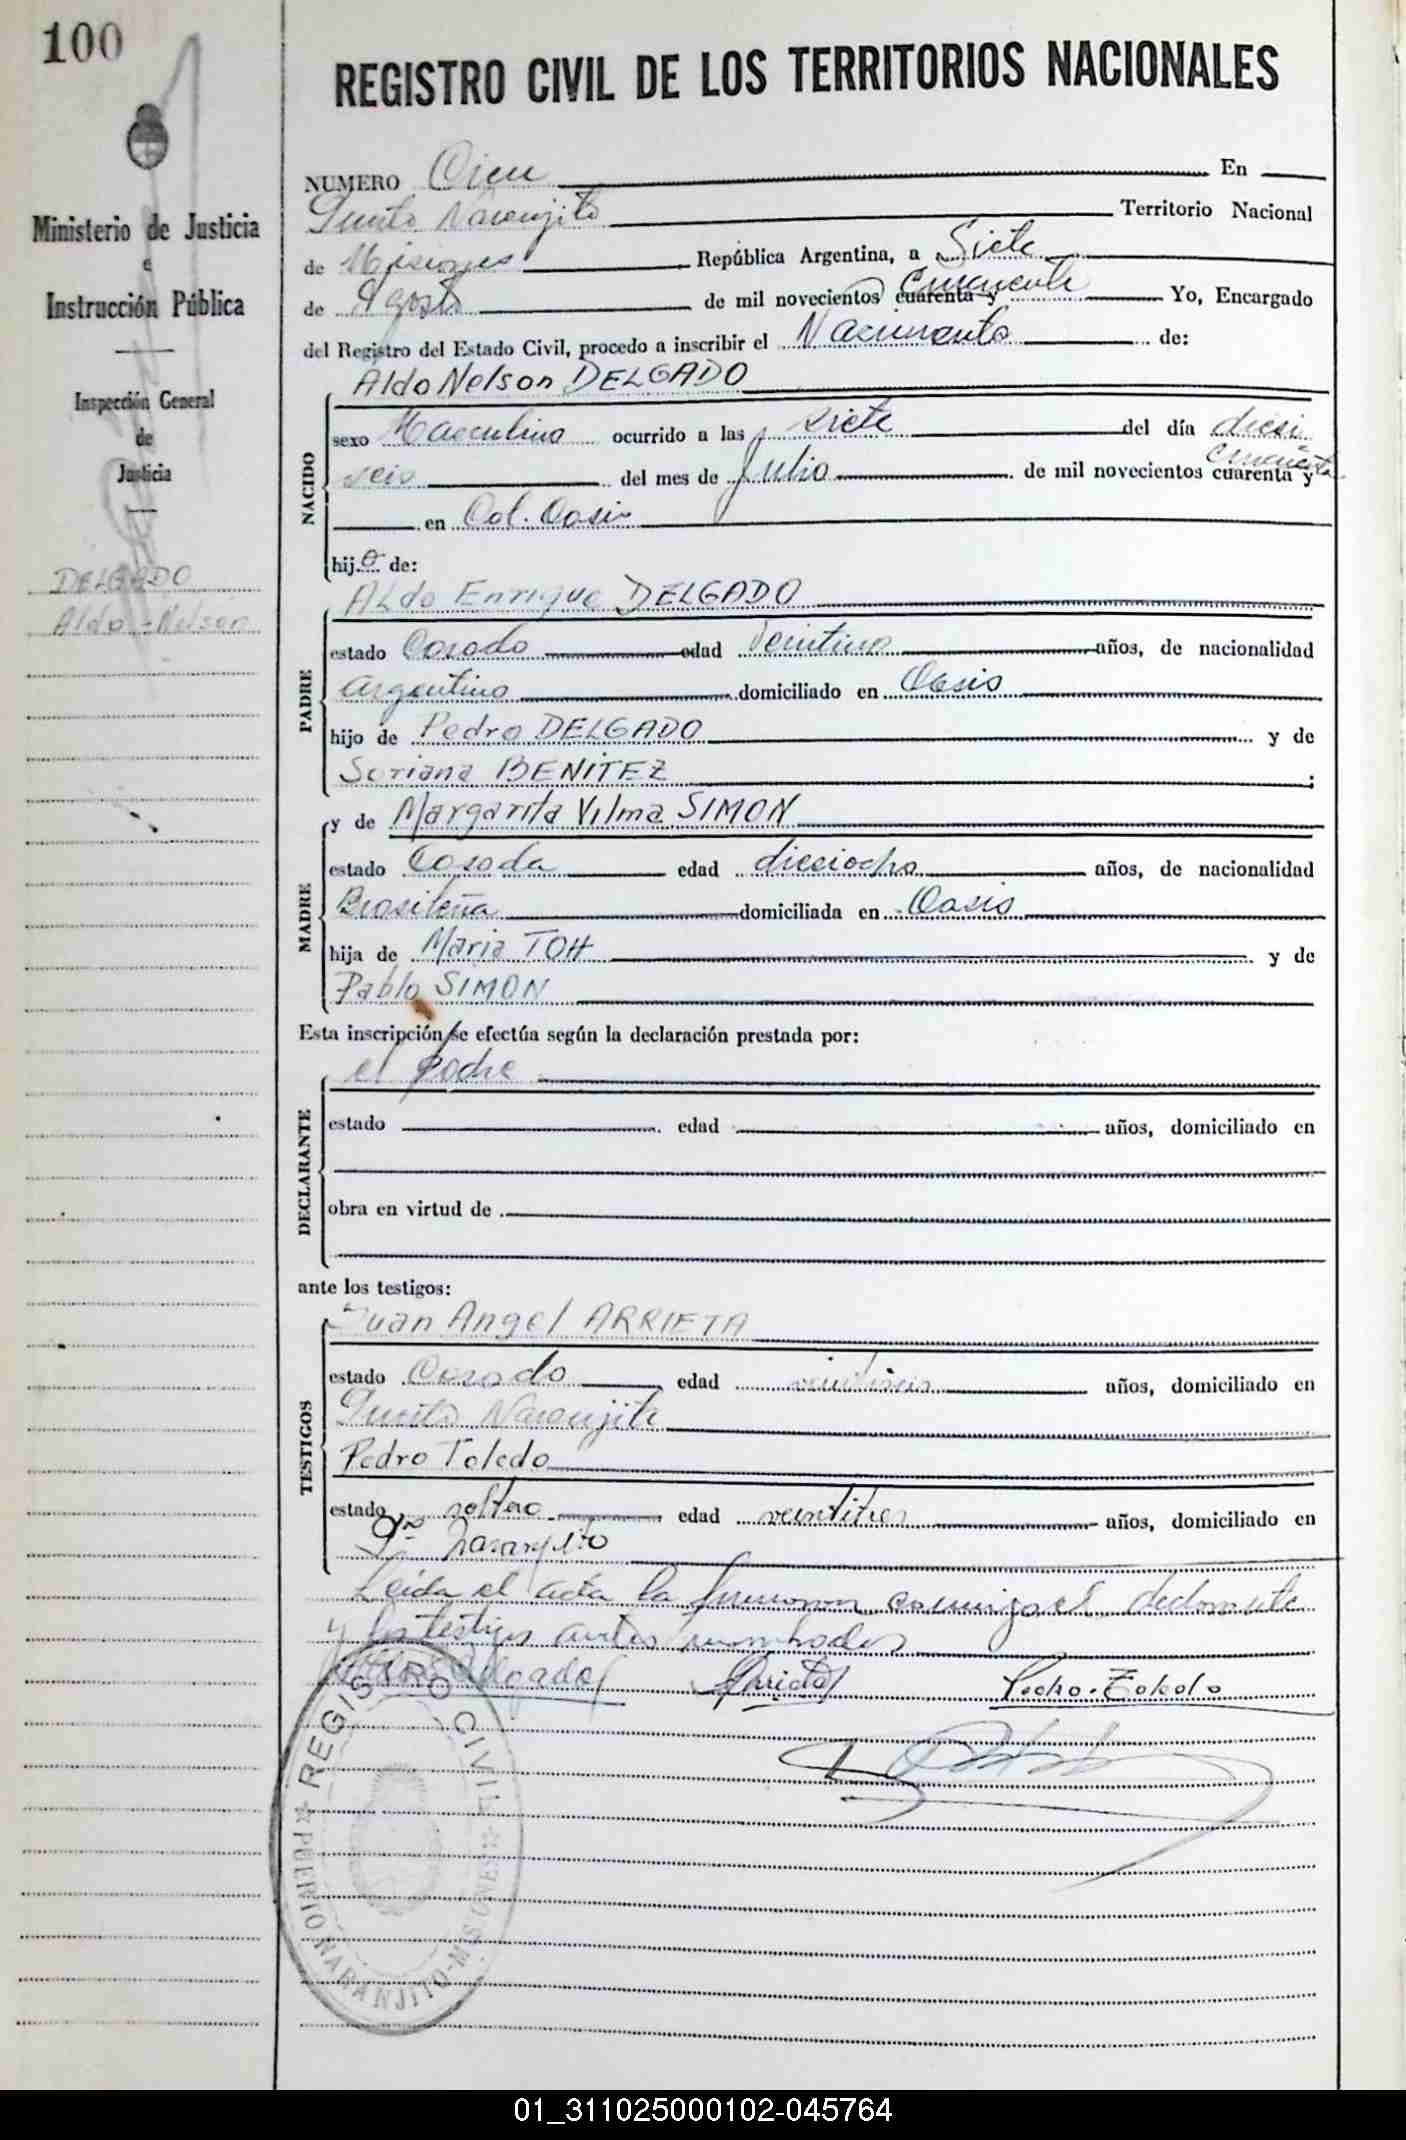 100
REGISTRO CIVIL DE LOS TERRITORIOS NACIONALES
Ministerio de Justicia
e
Instrucción Pública
Inspección General
de
Justicia
DELGADO
Aldo - Nelson
NUMERO Cien En
Puerto Naranjito Territorio Nacional
de Misiones República Argentina, a Siete
de Agosto de mil novecientos cuarenta y cincuenta Yo, Encargado
del Registro del Estado Civil, procedo a inscribir el Nacimiento de:
NACIDO
Aldo Nelson DELGADO
sexo Masculino ocurrido a las siete del día dieci
seis del mes de Julio de mil novecientos cuarenta y cincuenta
en Col. Oasis
hijo de:
PADRE
Aldo Enrique DELGADO
estado Casado edad años, de nacionalidad
Argentino domiciliado en Oasis
hijo de Pedro DELGADO y de
Soriana BENITEZ ;
MADRE
y de Margarita Vilma SIMON
estado Casada edad dieciocho años, de nacionalidad
Brasileña domiciliada en Oasis
hija de Maria TOH y de
Pablo SIMON
Esta inscripción se efectúa según la declaración prestada por:
DECLARANTE
el padre
estado edad años, domiciliado en
obra en virtud de
ante los testigos:
TESTIGOS
Juan Angel ARRIETA
estado Casado edad años, domiciliado en
Puerto Naranjito
Pedro Toledo
estado soltero edad veintitres años, domiciliado en
Pto Naranjito
Leida el acta la firmaron conmigo el declarante
y los testigos antes nombrados
Delgado Arrieta Pedro Toledo
REGISTRO CIVIL
PUERTO NARANJITO - MISIONES
01_311025000102-045764